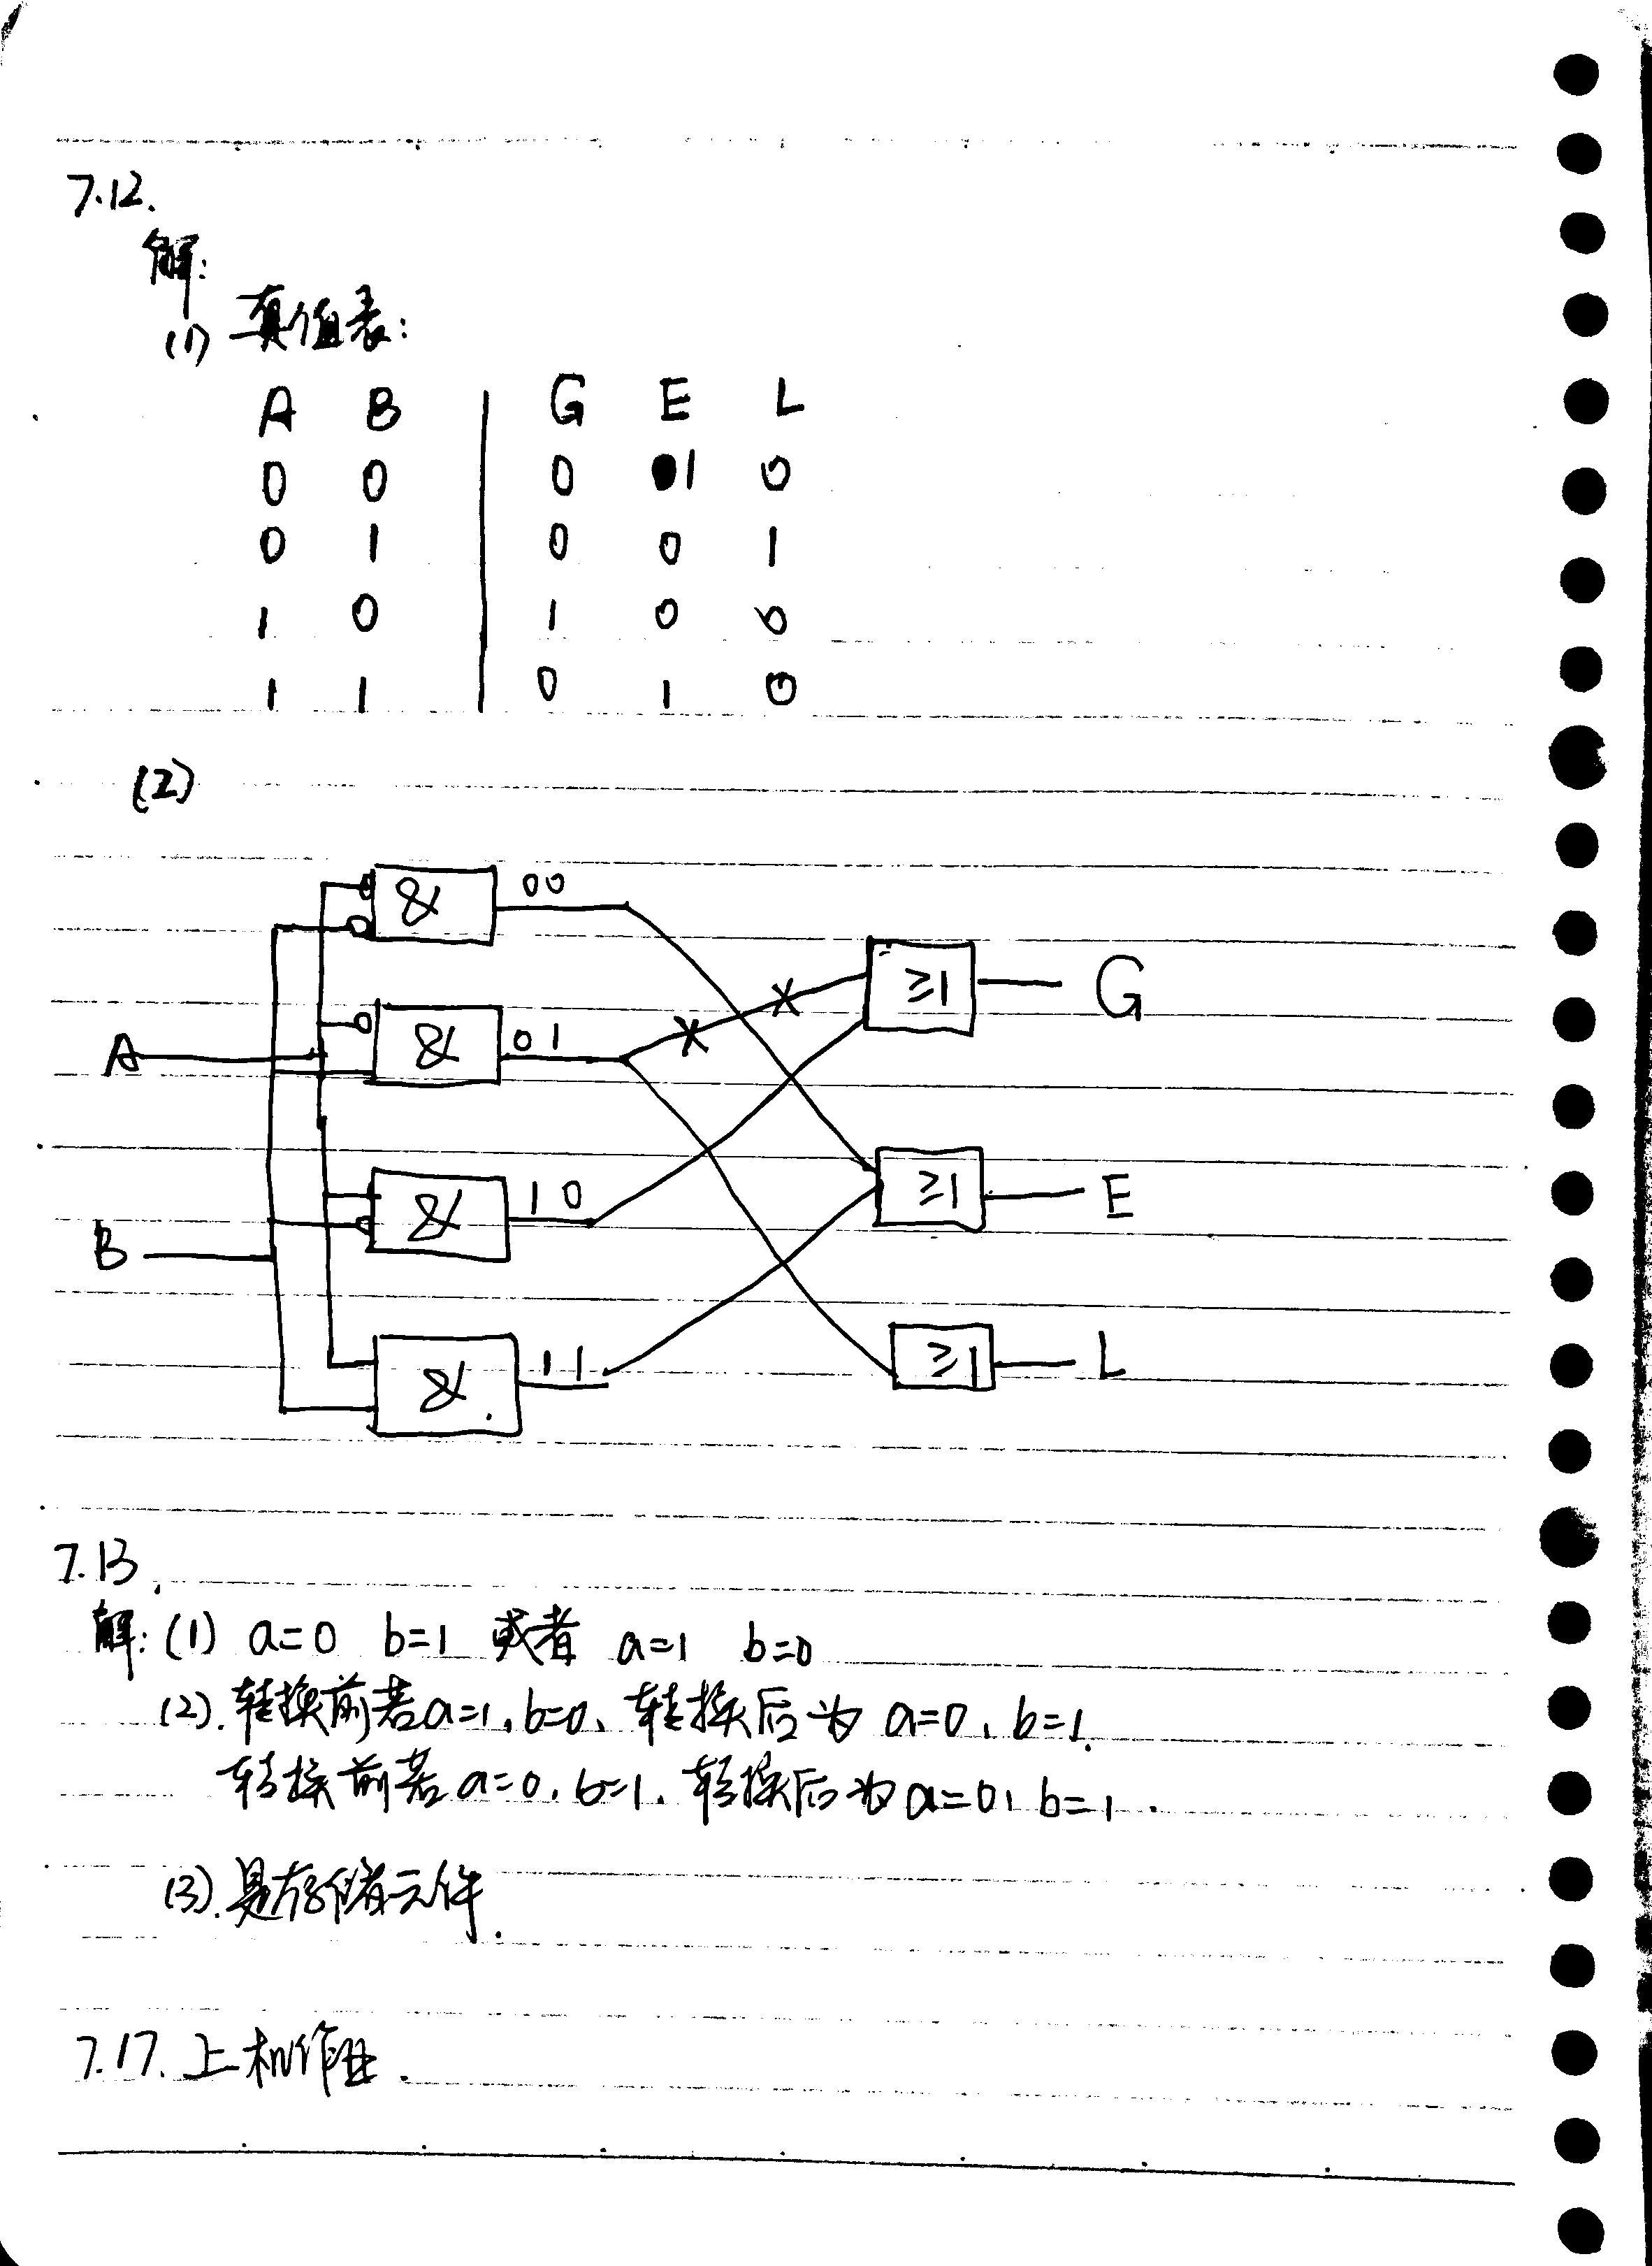 7.12.
解:
(1) 真值表:
A B G E L
0 0 0 1 0
0 1 0 0 1
1 0 1 0 0
1 1 0 1 0
(2)
& 00
≥1 G
A & 01
& 10 ≥1 E
B
& 11 ≥1 L
7.13.
解:(1) a=0 b=1 或者 a=1 b=0
(2). 转换前若a=1,b=0、转换后为 a=0、b=1.
转换前若a=0,b=1、转换后为a=0、b=1.
(3). 是存储元件.
7.17. 上机作业.